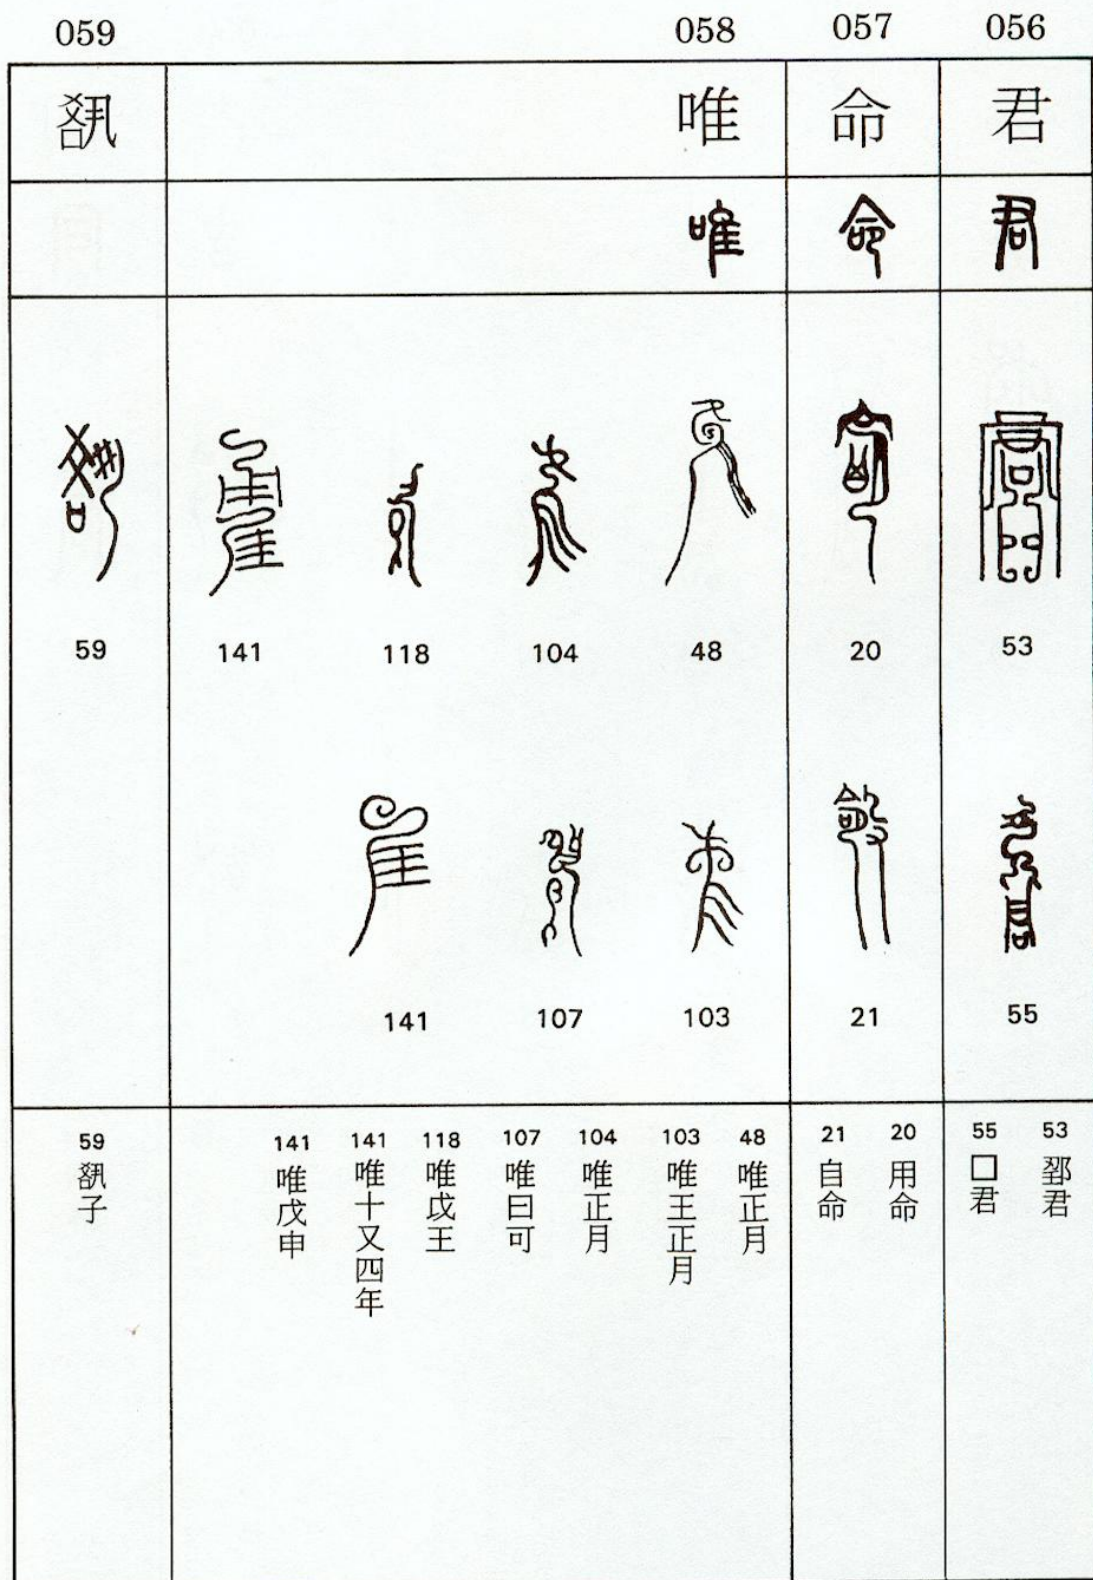 056
君
君
53
55
53 鄀君
55 □君
057
命
命
20
21
20 用命
21 自命
058
唯
唯
48
103
104
107
118
141
141
48 唯正月
103 唯王正月
104 唯正月
107 唯曰可
118 唯戉王
141 唯十又四年
141 唯戊申
059
59
59 子